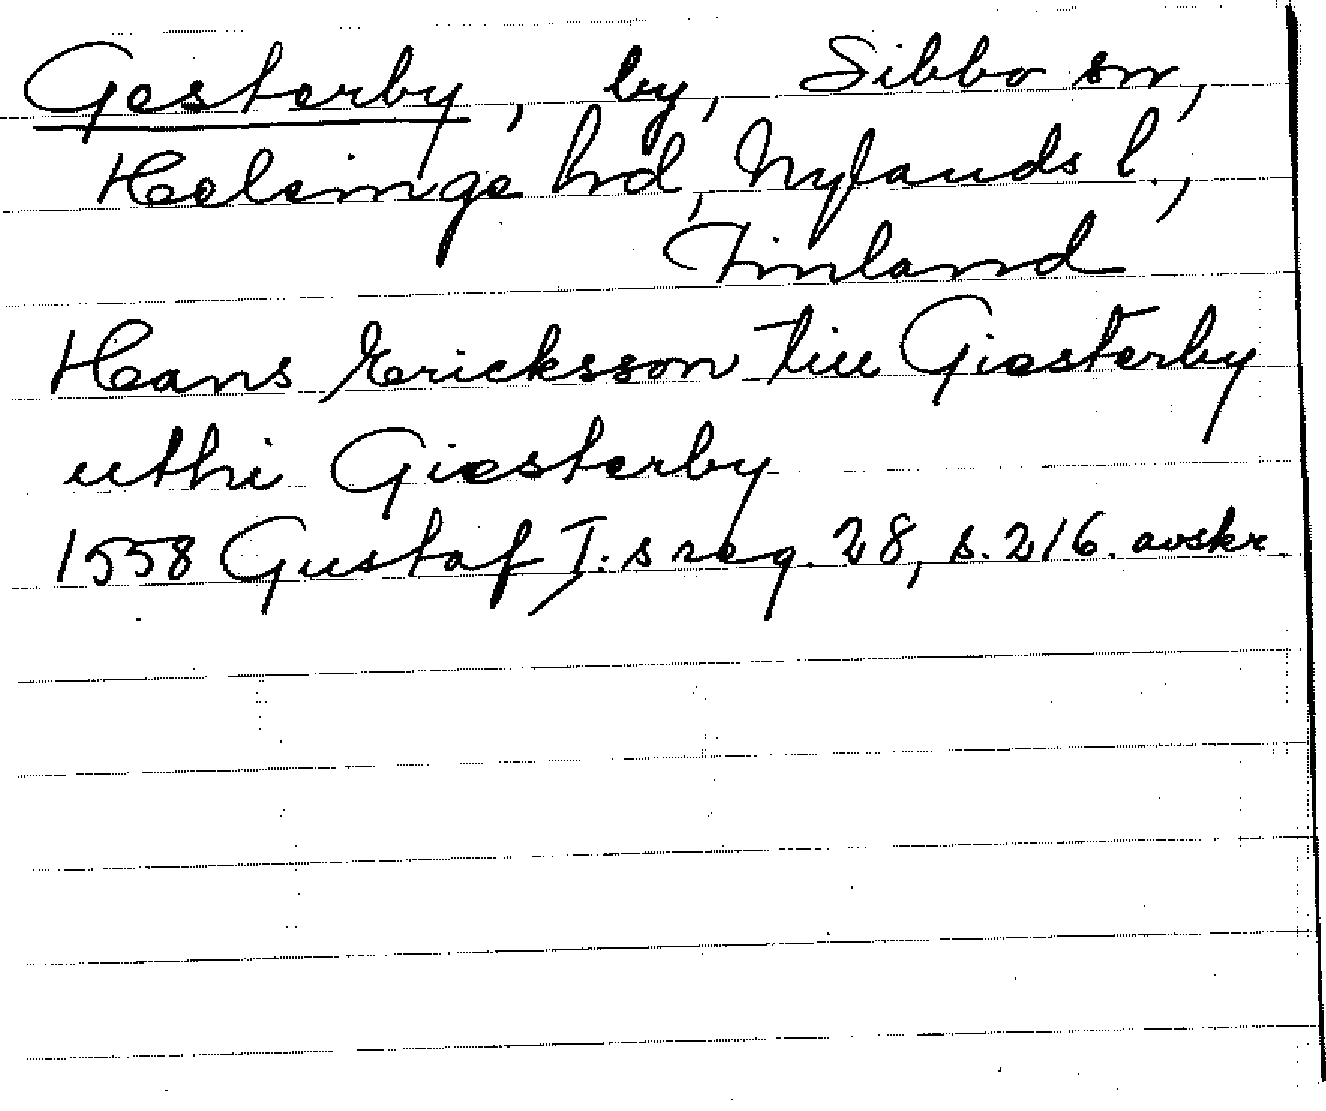 Gesterby, by, Sibbo sn,
Helsinge hrd, Nylands l.,
Finland
Hans Ericksson till Giesterby
uthi Giesterby
1558 Gustaf I:s reg. 28, s. 216. avskr.